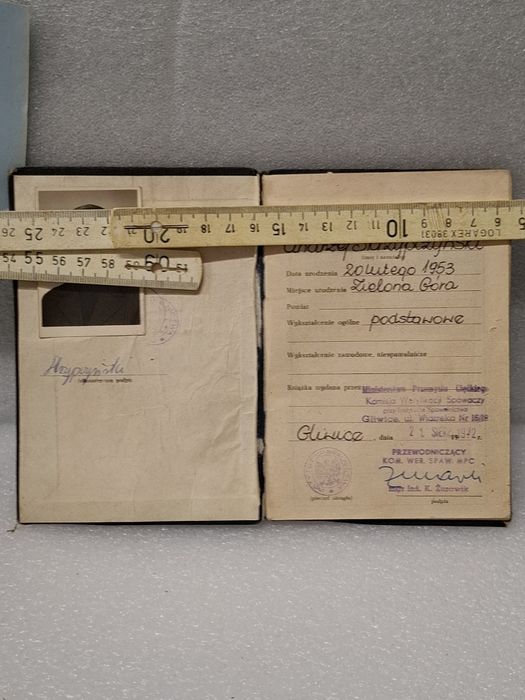 26 25 24 23 22 21 20 19 18 17 16 15 14 13 12 11 10 9 8 7 6 5
LOGAREX 38031
54 55 56 57 58
Andrzej
(imię i nazwisko)
Data urodzenia 20 lutego 1953
Miejsce urodzenia Zielona Góra
Powiat
Wykształcenie ogólne podstawowe
Wykształcenie zawodowe, niespawalnicze
Książka wydana przez Ministerstwo Przemysłu Ciężkiego
Komisja Weryfikacji Spawaczy
przy Instytucie Spawalnictwa
Gliwice, ul. Wiązowa Nr
Gliwice, dnia 21 1972 r.
PRZEWODNICZĄCY
KOM. WER. SPAW. MPC
Inż. K. Żurowik
(pieczęć okrągła)
podpis